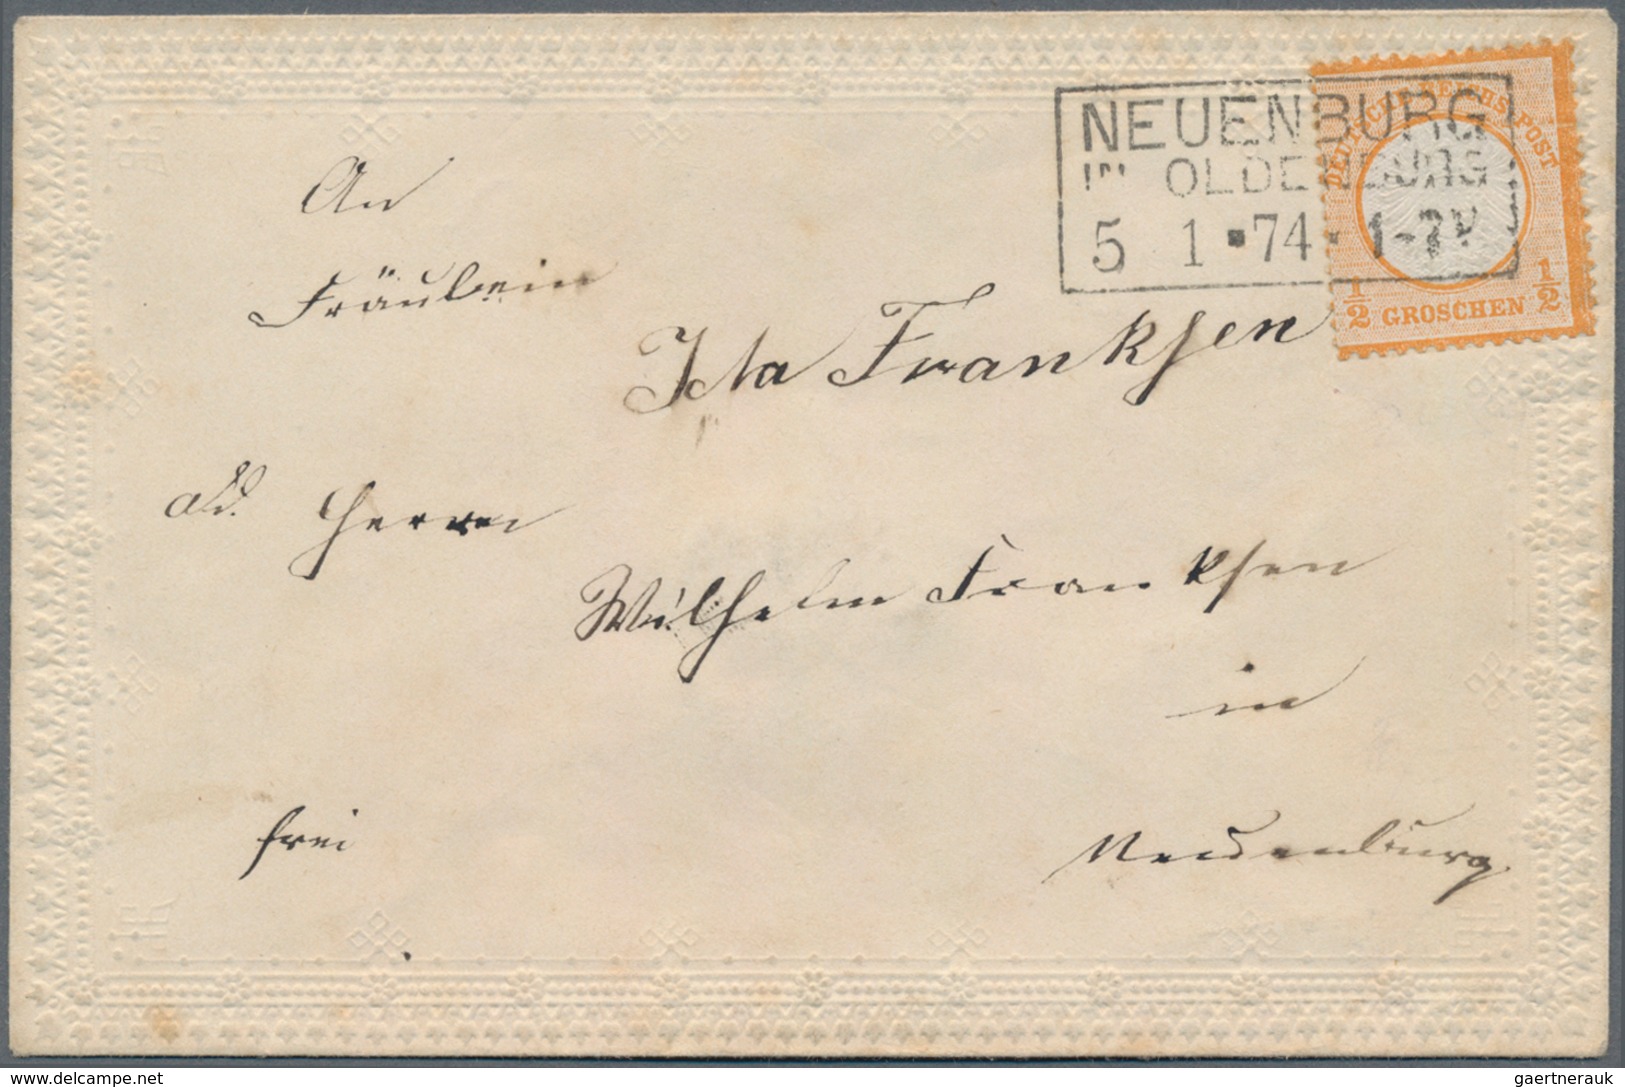 NEUENBURG
IN OLDENBURG
5 1 74 1-7V
DEUTSCHE REICHS-POST
1/2 GROSCHEN 1/2
An
Fräulein
Ida Franksen
Herrn
Wilhelm Franksen
in
frei
Neuenburg
delcampe.net
gaertnerauk